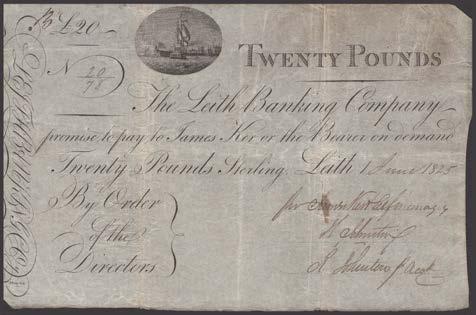 £20
TWENTY POUNDS
N 20/78
The Leith Banking Company
promise to pay to James Ker or the Bearer on demand
Twenty Pounds Sterling. Leith 1 June 1825
By Order
of the
Directors
for